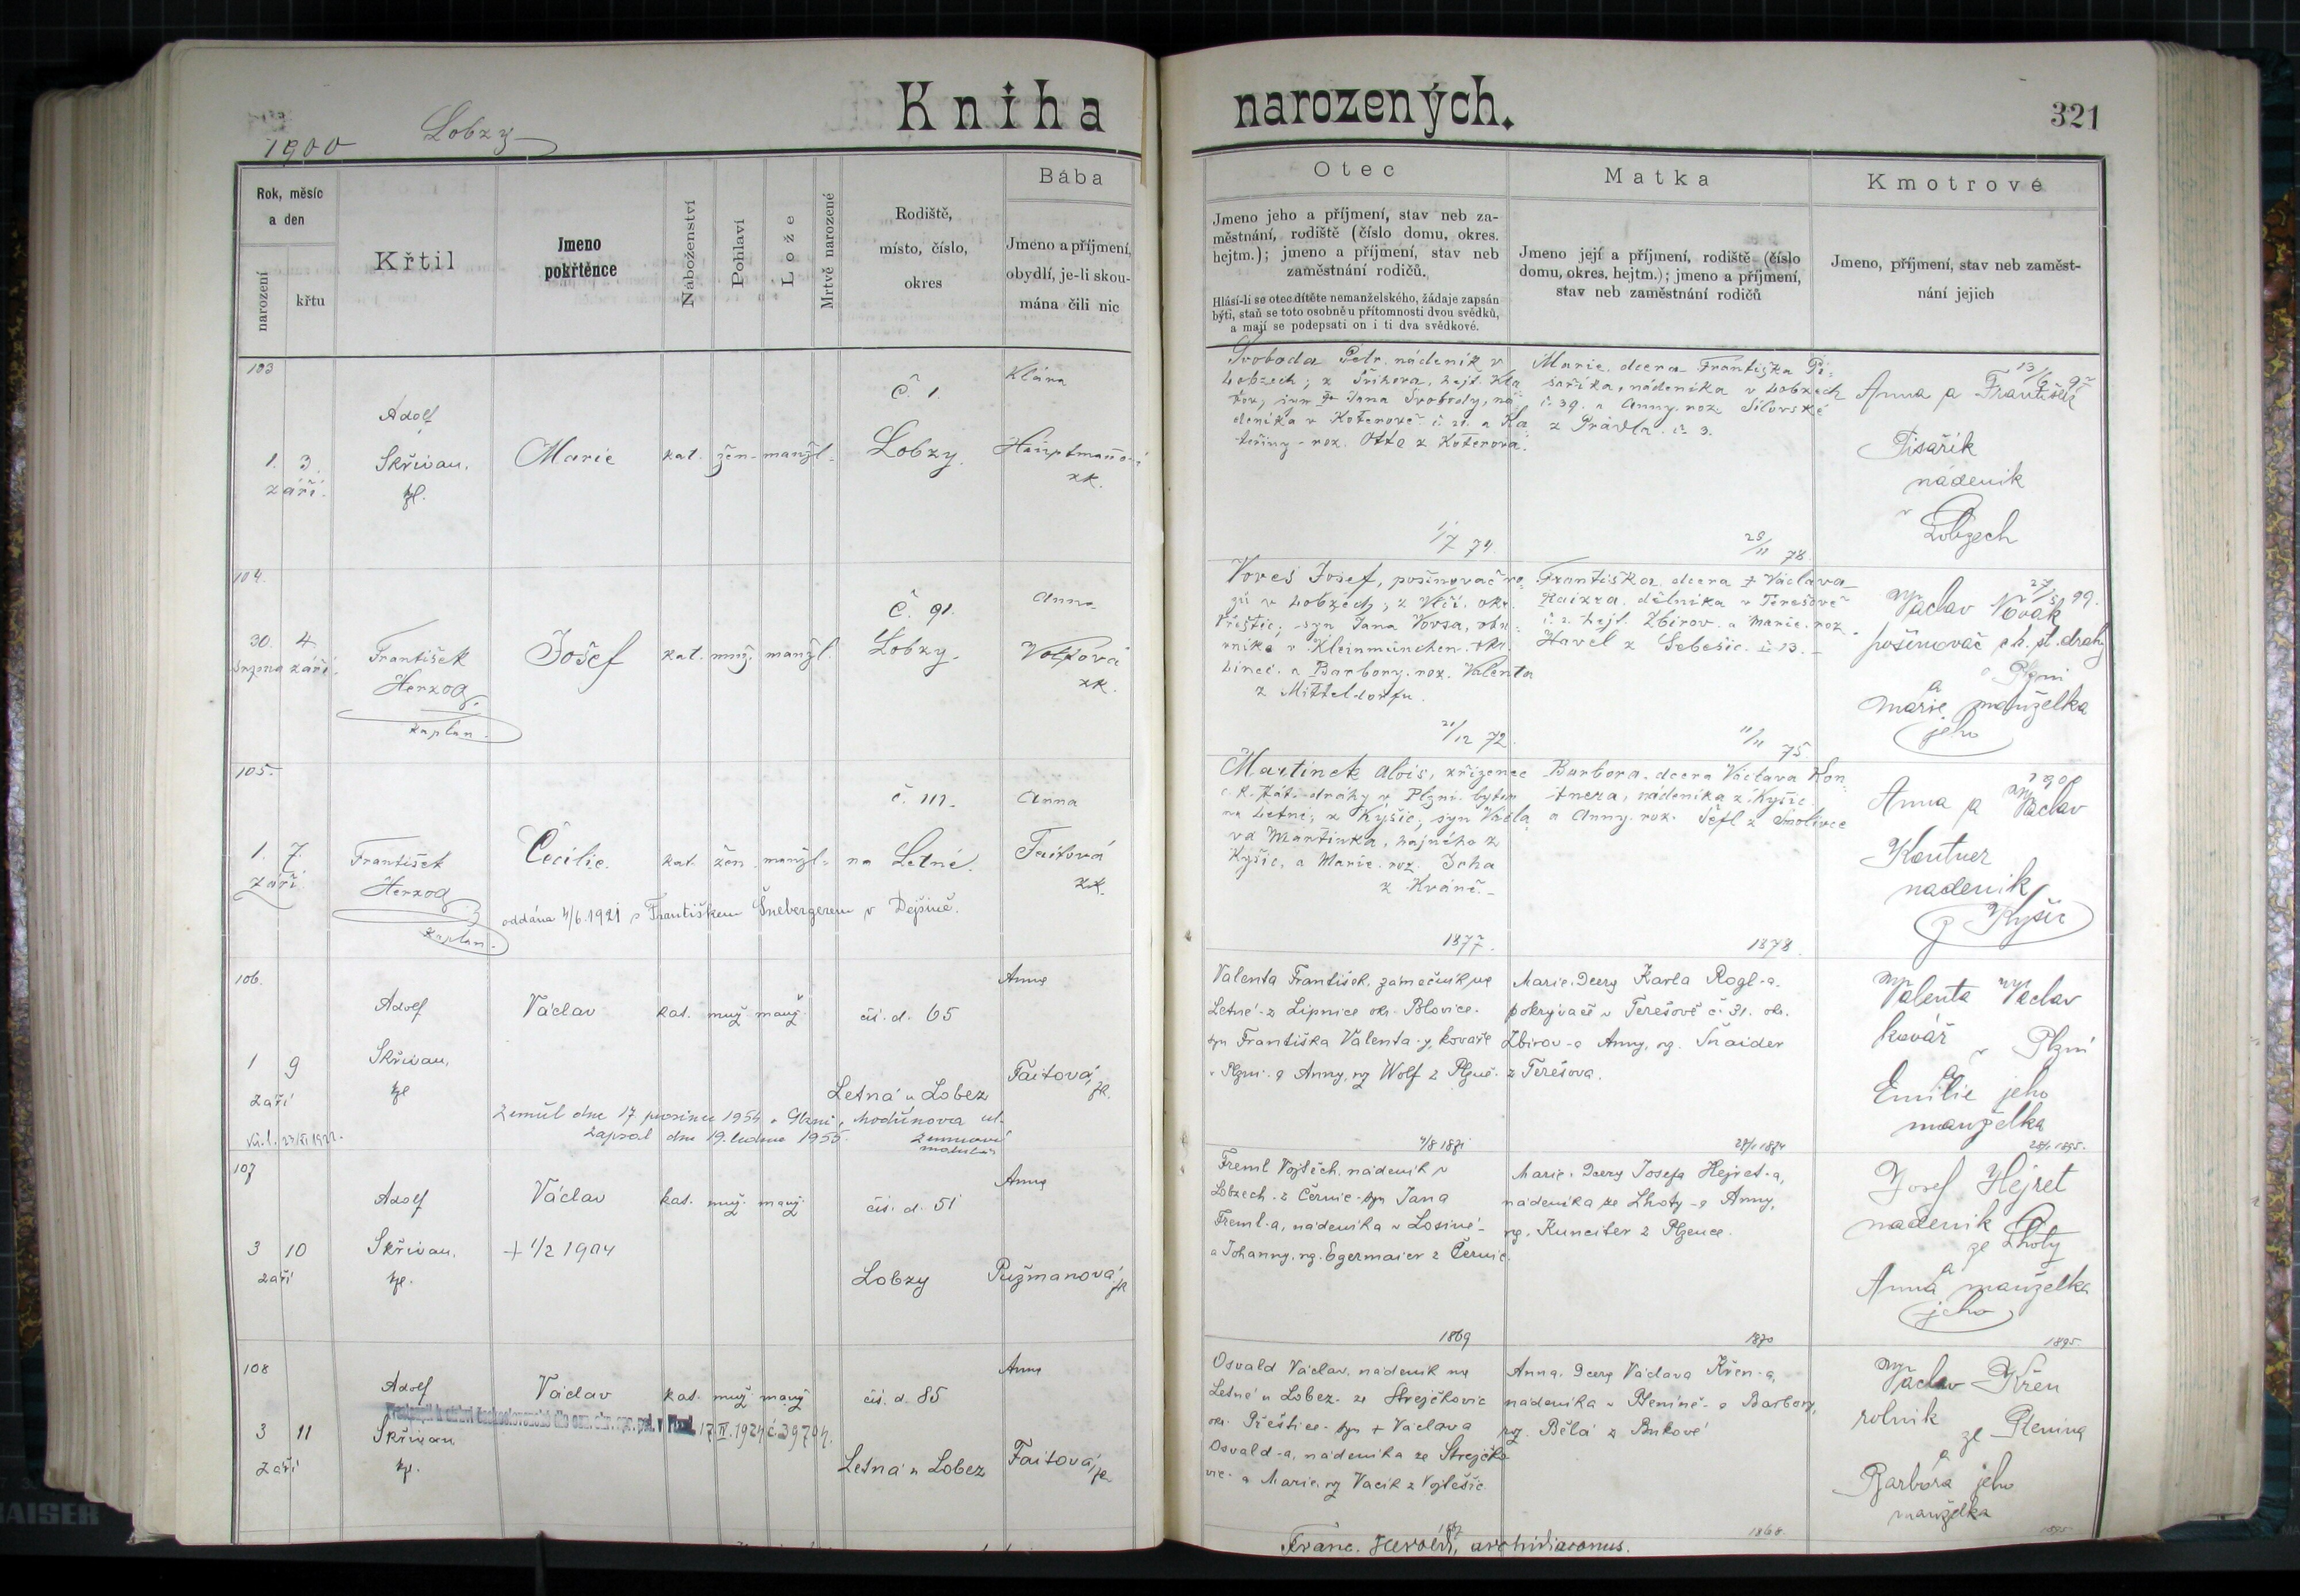 1900
Lobzy
Kniha narozených.
321
Rok, měsíc
a den
narození
křtu
Křtil
Jmeno
pokřtěnce
Náboženství
Pohlaví
Lože
Mrtvě narozené
Rodiště,
místo, číslo,
okres
Bába
Jmeno a příjmení,
obydlí, je-li skou-
mána čili nic
Otec
Jmeno jeho a příjmení, stav neb za-
městnání, rodiště (číslo domu, okres.
hejtm.); jmeno a příjmení, stav neb
zaměstnání rodičů.
Hlásí-li se otec dítěte nemanželského, žádaje zapsán
býti, staň se toto osobně u přítomnosti dvou svědků,
a mají se podepsati on i ti dva svědkové.
Matka
Jmeno její a příjmení, rodiště (číslo
domu, okres. hejtm.); jmeno a příjmení,
stav neb zaměstnání rodičů
Kmotrové
Jmeno, příjmení, stav neb zaměst-
nání jejich
103
1. 3.
září.
Adolf
Skřivan,
kpl.
Marie
kat. žen. manžl.
Č. 1.
Lobzy.
Klára
zk.
Svoboda Petr, nádeník v
Lobzech; z
Jana Svobody, ná-
deníka v Koterově č. 21. a Ka
teřiny roz. Otta z Koterova.
1/7 74.
Marie, dcera Františka Pi-
saříka, nádeníka v Lobzech
č. 39. a Anny roz. Silovské
č. 3.
28/11 78.
Anna a František
Pisařík
nádeník
v
Lobzech
104.
30. 4.
srpna září.
František
Herzog,
kaplan.
Josef
kat. muž. manžl.
Č. 91.
Lobzy.
Anna
Volfová
zk.
Voreš Josef, pošinovač vo-
zů v Lobzech; z Vlčí, okr.
Přeštic; syn Jana Vorsa,
v Kleinmünchen, okr.
Linec, a Barbory, roz. Valenta
z Mitteldorfu.
21/12 72.
Františka, dcera + Václava
dělníka v Terešově
č. 2. hejt. Zbirov, a Marie, roz.
Havel z Sebešic č. 13.
11/11 75
Václav Novák
pošinovač st. dráhy
v Plzni
a
Marie manželka
jeho
105.
1. 7.
září
František
Herzog
kaplan.
Cecilie.
kat. žen. manžl.
č. 111.
na Letné.
Anna
Faitová
zk.
oddána 4/6.1921 s Františkem Šnebergerem v Dejšině.
Martínek Alois, zřízenec
c. k. stát. dráhy v Plzni, bytem
na Letné; z Kyšic; syn Václa
va Martínka, hajného z
Kyšic, a Marie, roz. Jcha
1877.
Barbora, dcera Václava Kon-
tnera, nádeníka z Kyšic
a Anny roz. Šefl z Smolivce
1878.
1900
Anna a Václav
Kontner
nádeník
z Kyšic
106.
1 9
září
Adolf
Skřivan,
kpl
Václav
kat. muž. manž.
čís. d. 65
Letná u Lobez
Anna
Faitová,
zk.
Zemřel dne 17. prosince 1954 v Plzni,
Zapsal dne 19. ledna 1955.
Valenta František, zámečník na
Letné z Lipnice okr. Blovice.
syn Františka Valenty, kováře
v Plzni a Anny, rz. Wolf z Plzně.
4/8 1871
Marie, dcera Karla Rogl-a,
pokrývače v Terešově č. 31. okr.
Zbirov a Anny, rz. Šnaider
z Terešova.
Valenta Václav
kovář
v Plzni
a
Emilie jeho
manželka
107
3 10
září
Adolf
Skřivan,
kpl.
Václav
+ 1/2 1904
kat. muž. manž.
čís. d. 51
Lobzy
Anna
Pužmanová,
zk
Freml Vojtěch, nádeník v
Lobzech z Černic syn Jana
Freml-a, nádeníka v Losiné
a Johanny, rz. Egermaier z Černic.
1869
Marie, dcera Josefa Hejret-a,
nádeníka ze Lhoty a Anny,
rz. Kunciter z Plzence.
1870
Josef Hejret
nádeník
ze Lhoty
a
Anna manželka
jeho
1895.
108
3 11
září
Adolf
Skřivan
kpl.
Václav
kat. muž. manž.
čís. d. 85
Letná u Lobez
Anna
Faitová, zk
17.IV.1924 č. 39794.
Osvald Václav, nádeník na
Letné u Lobez ze Strejčkovic
okr. Přeštice syn + Václava
Osvald-a, nádeníka ze Strejčko
vic a Marie, rz Vacík z Vojtěšic.
Anna, dcera Václava Křen-a,
nádeníka v Pleníně a Barbory,
rz. Bělá z Bukové
1868.
Václav Křen
rolník
ze Plenína
a
Barbora jeho
manželka
1895
Franc. Herold, archidiaconus.